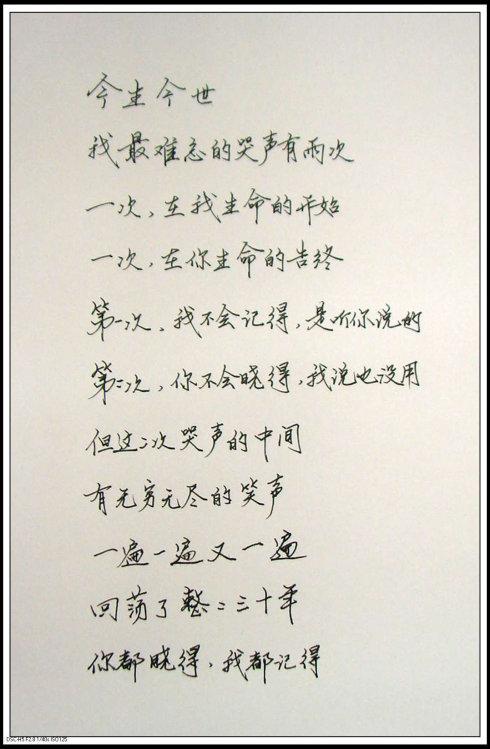 今生今世
我最难忘的哭声有两次
一次，在我生命的开始
一次，在你生命的告终
第一次，我不会记得，是听你说的
第二次，你不会晓得，我说也没用
但这二次哭声的中间
有无穷无尽的笑声
一遍一遍又一遍
回荡了整二三十年
你都晓得，我都记得